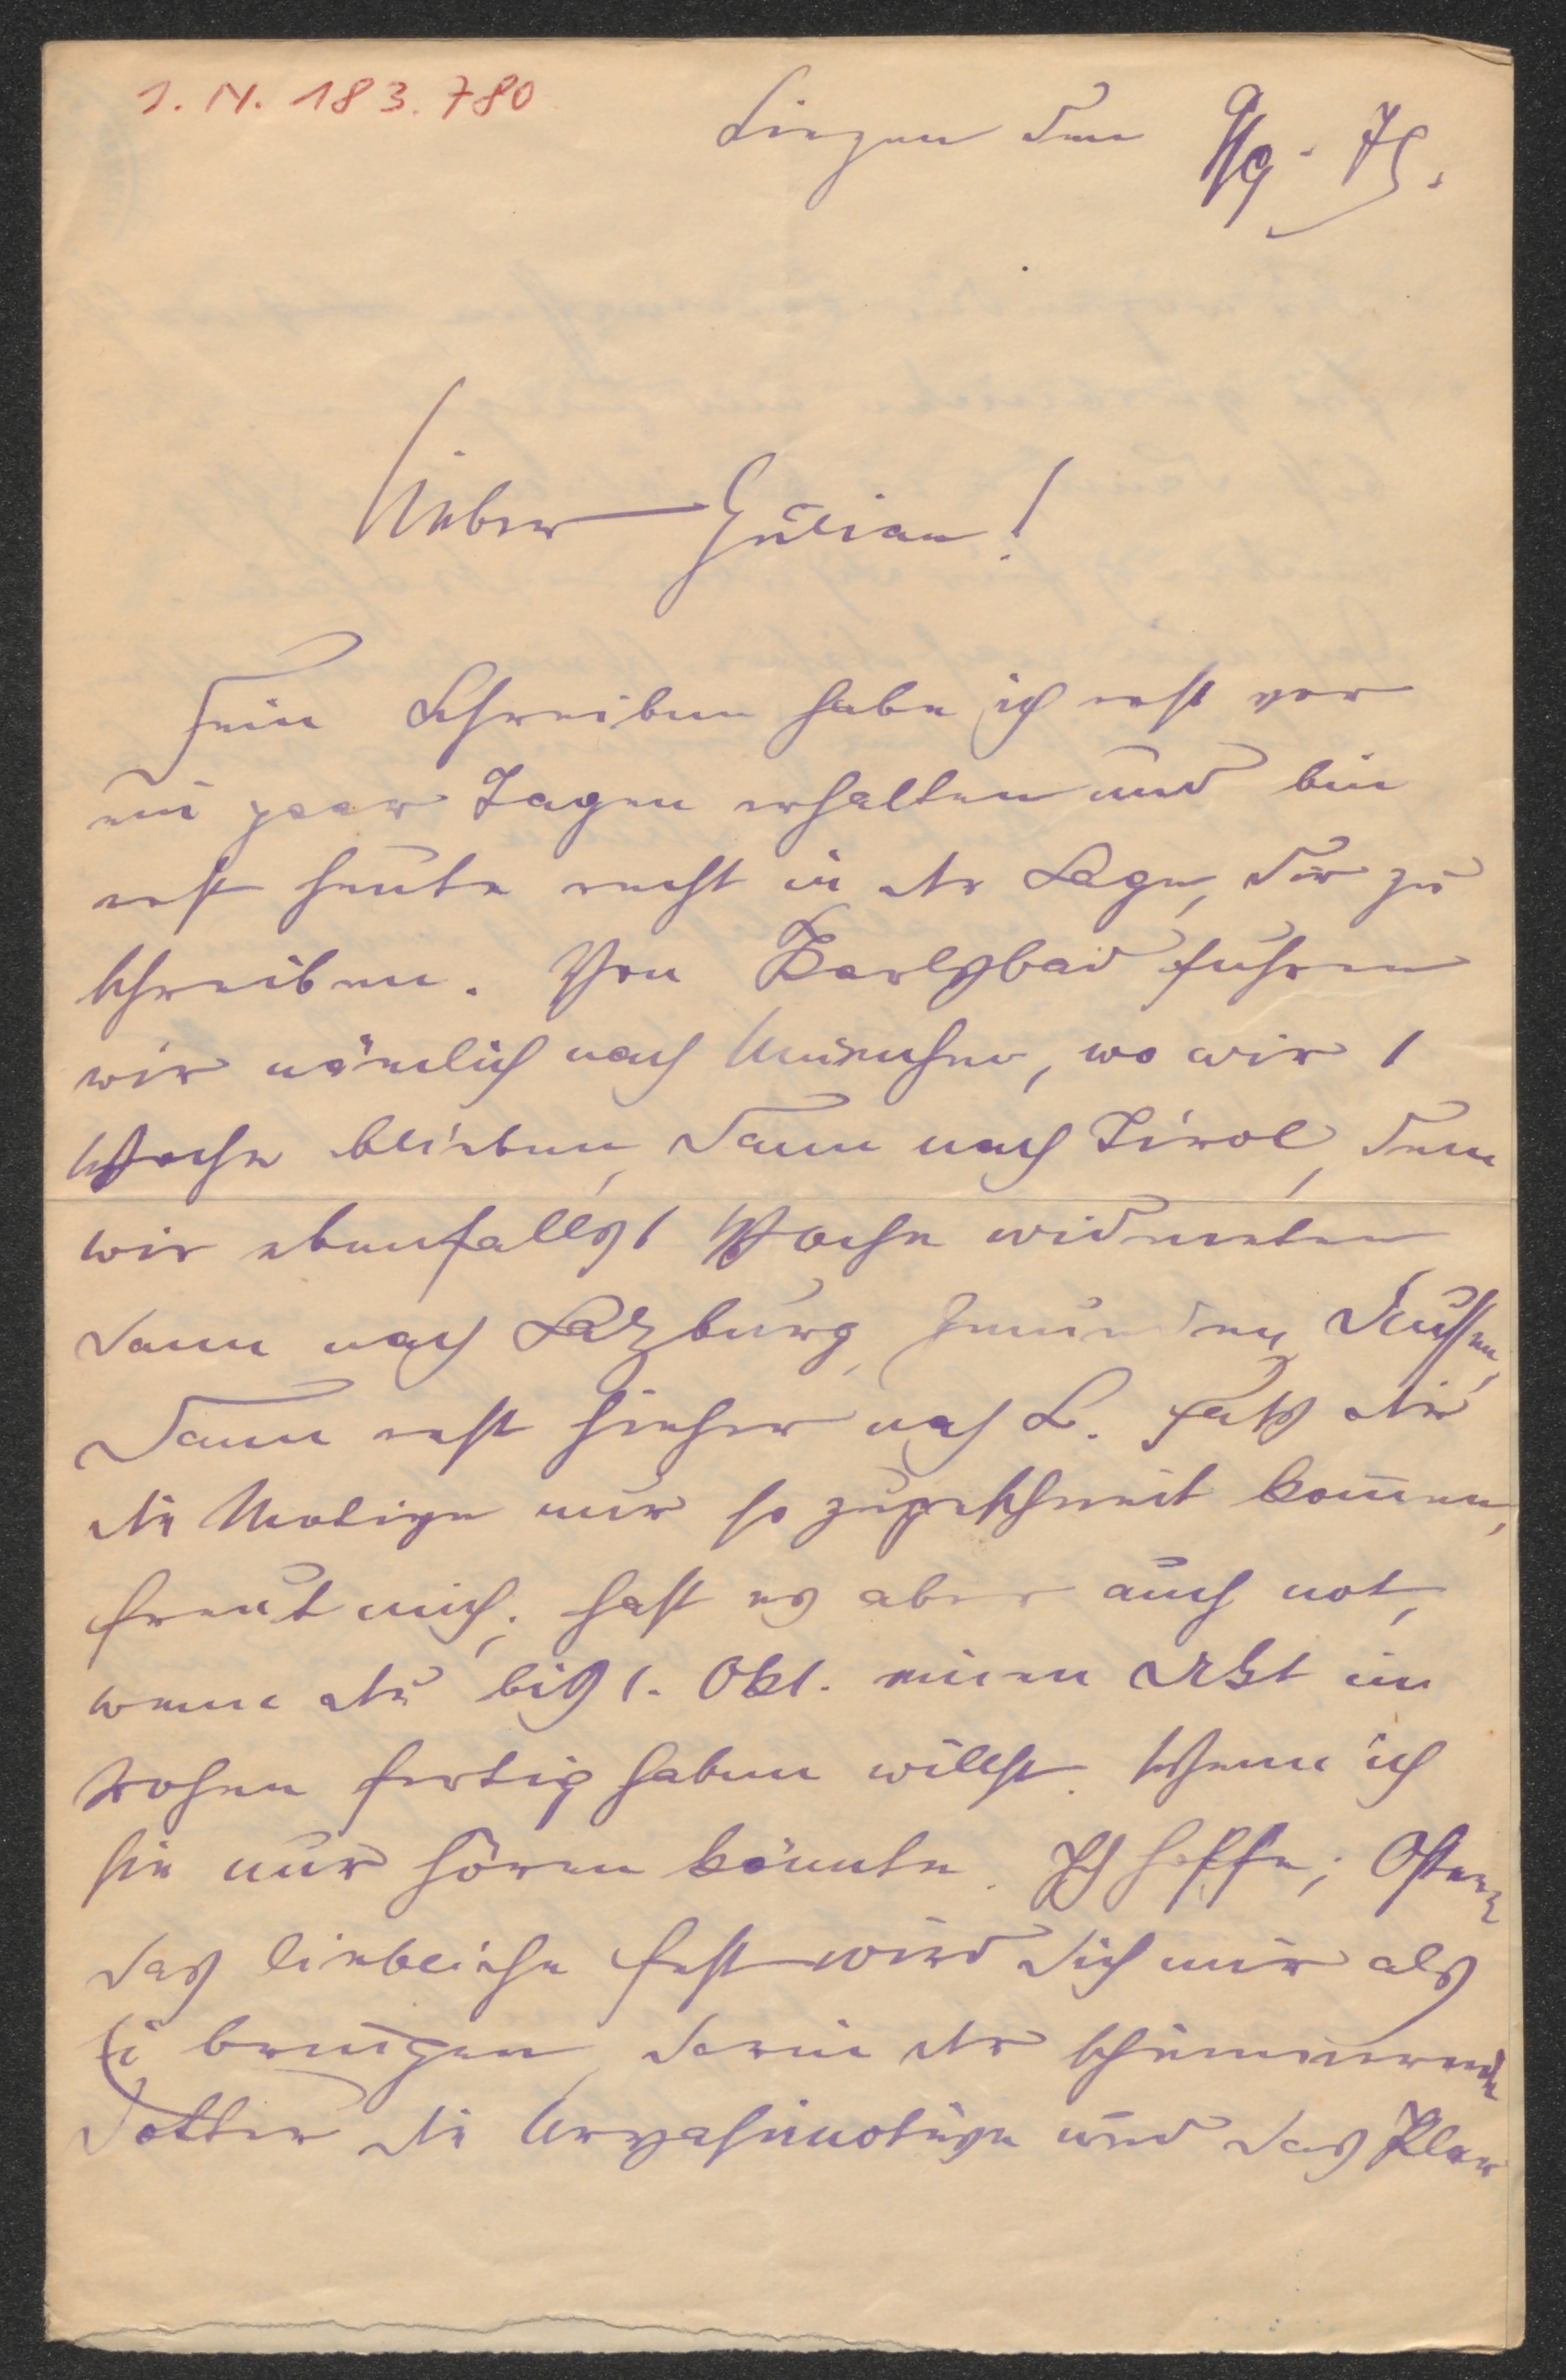 I. N. 183.780
Liezen den 9/9. 79.
Lieber Julian!
Dein Schreiben habe ich erst vor
ein paar Tagen erhalten und bin
erst heute recht in der Lage, dir zu
schreiben. Von Karlsbad fuhren
wir nämlich nach München, wo wir 1
Woche blieben, dann nach Tirol, dem
wir ebenfalls 1 Woche widmeten
dann nach Salzburg, Gmunden, Aussee,
dann erst hieher nach L. Daß dir
die Motive nur so zugeschneit kommen,
freut mich; hast es aber auch not,
wenn du bis 1. Okt. einen Akt im
rohen fertig haben willst. Wenn ich
sie nur hören könnte. Ich hoffe, Ostern
das liebliche Fest wird dich mir als
Ei bringen, darin der schimmernde
Dotter die Urvasimotive und das Klar